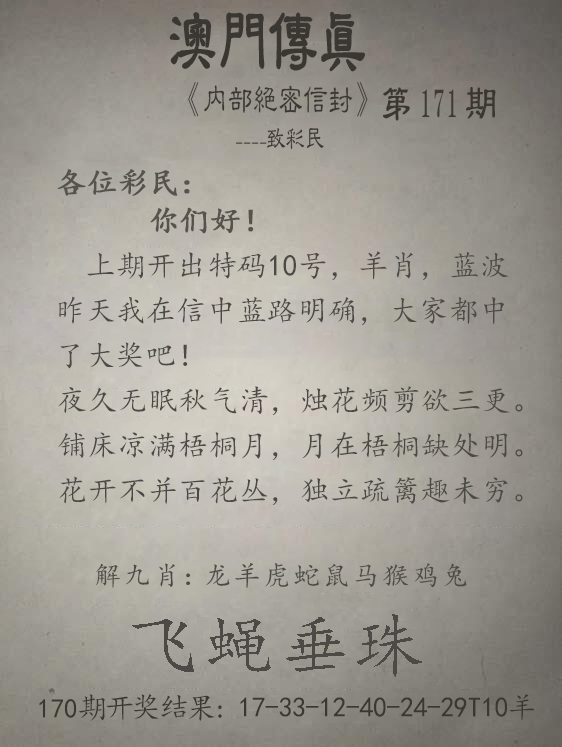 澳門傳眞
《内部絕密信封》第171期
----致彩民
各位彩民：
你们好！
上期开出特码10号，羊肖，蓝波
昨天我在信中蓝路明确，大家都中
了大奖吧！
夜久无眠秋气清，烛花频剪欲三更。
铺床凉满梧桐月，月在梧桐缺处明。
花开不并百花丛，独立疏篱趣未穷。
解九肖：龙羊虎蛇鼠马猴鸡兔
飞蝇垂珠
170期开奖结果：17-33-12-40-24-29T10羊